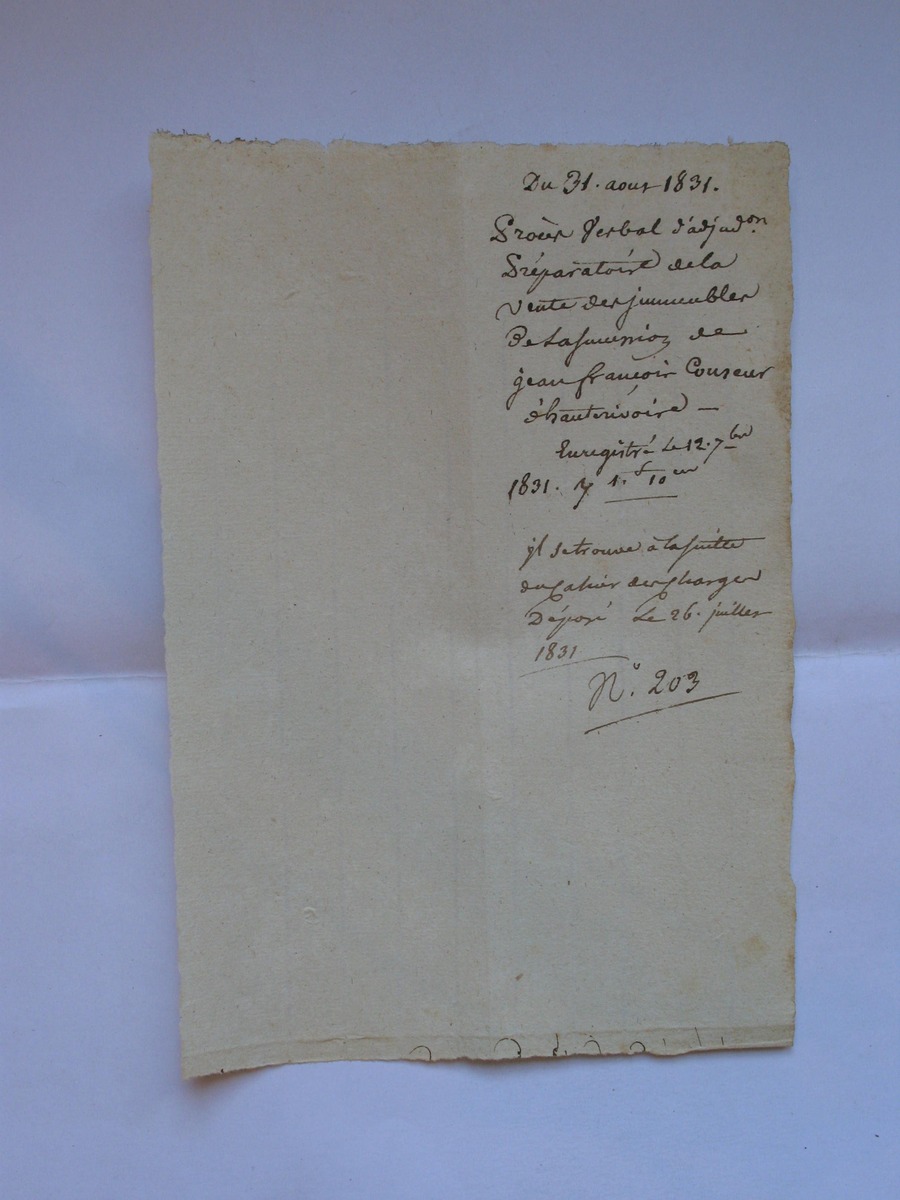 Du 31. aout 1831.
Procès Verbal d'adjudon.
Préparatoire de la
vente des jmmeubles
De La succession de
jean françois Couzeur
d'hauterivoire —
Enregistré Le 12. 7bre
1831. 1.f 10 cen
jl se trouve à la suitte
du Cahier des Charges
Déposé Le 26. juillet
1831
No. 203